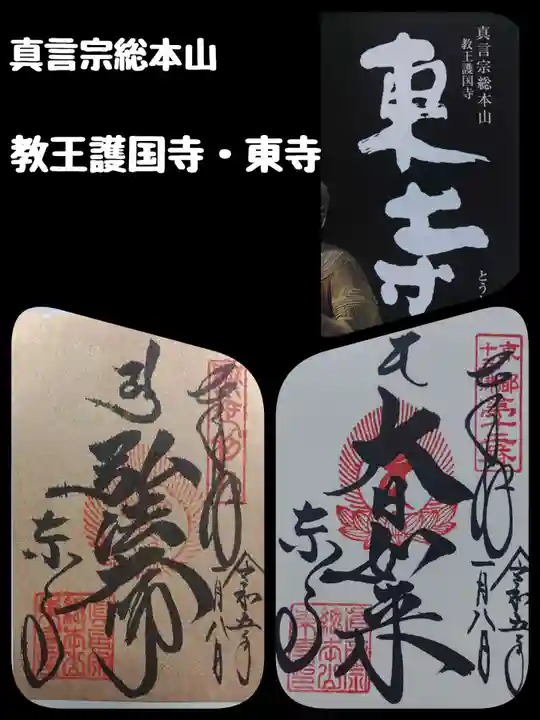 真言宗総本山
教王護国寺・東寺
真言宗総本山
教王護国寺
東寺
とう
奉拝
弘法大師
東寺
令和五年
一月八日
奉拝
大日如来
東寺
令和五年
一月八日
真言宗
総本山